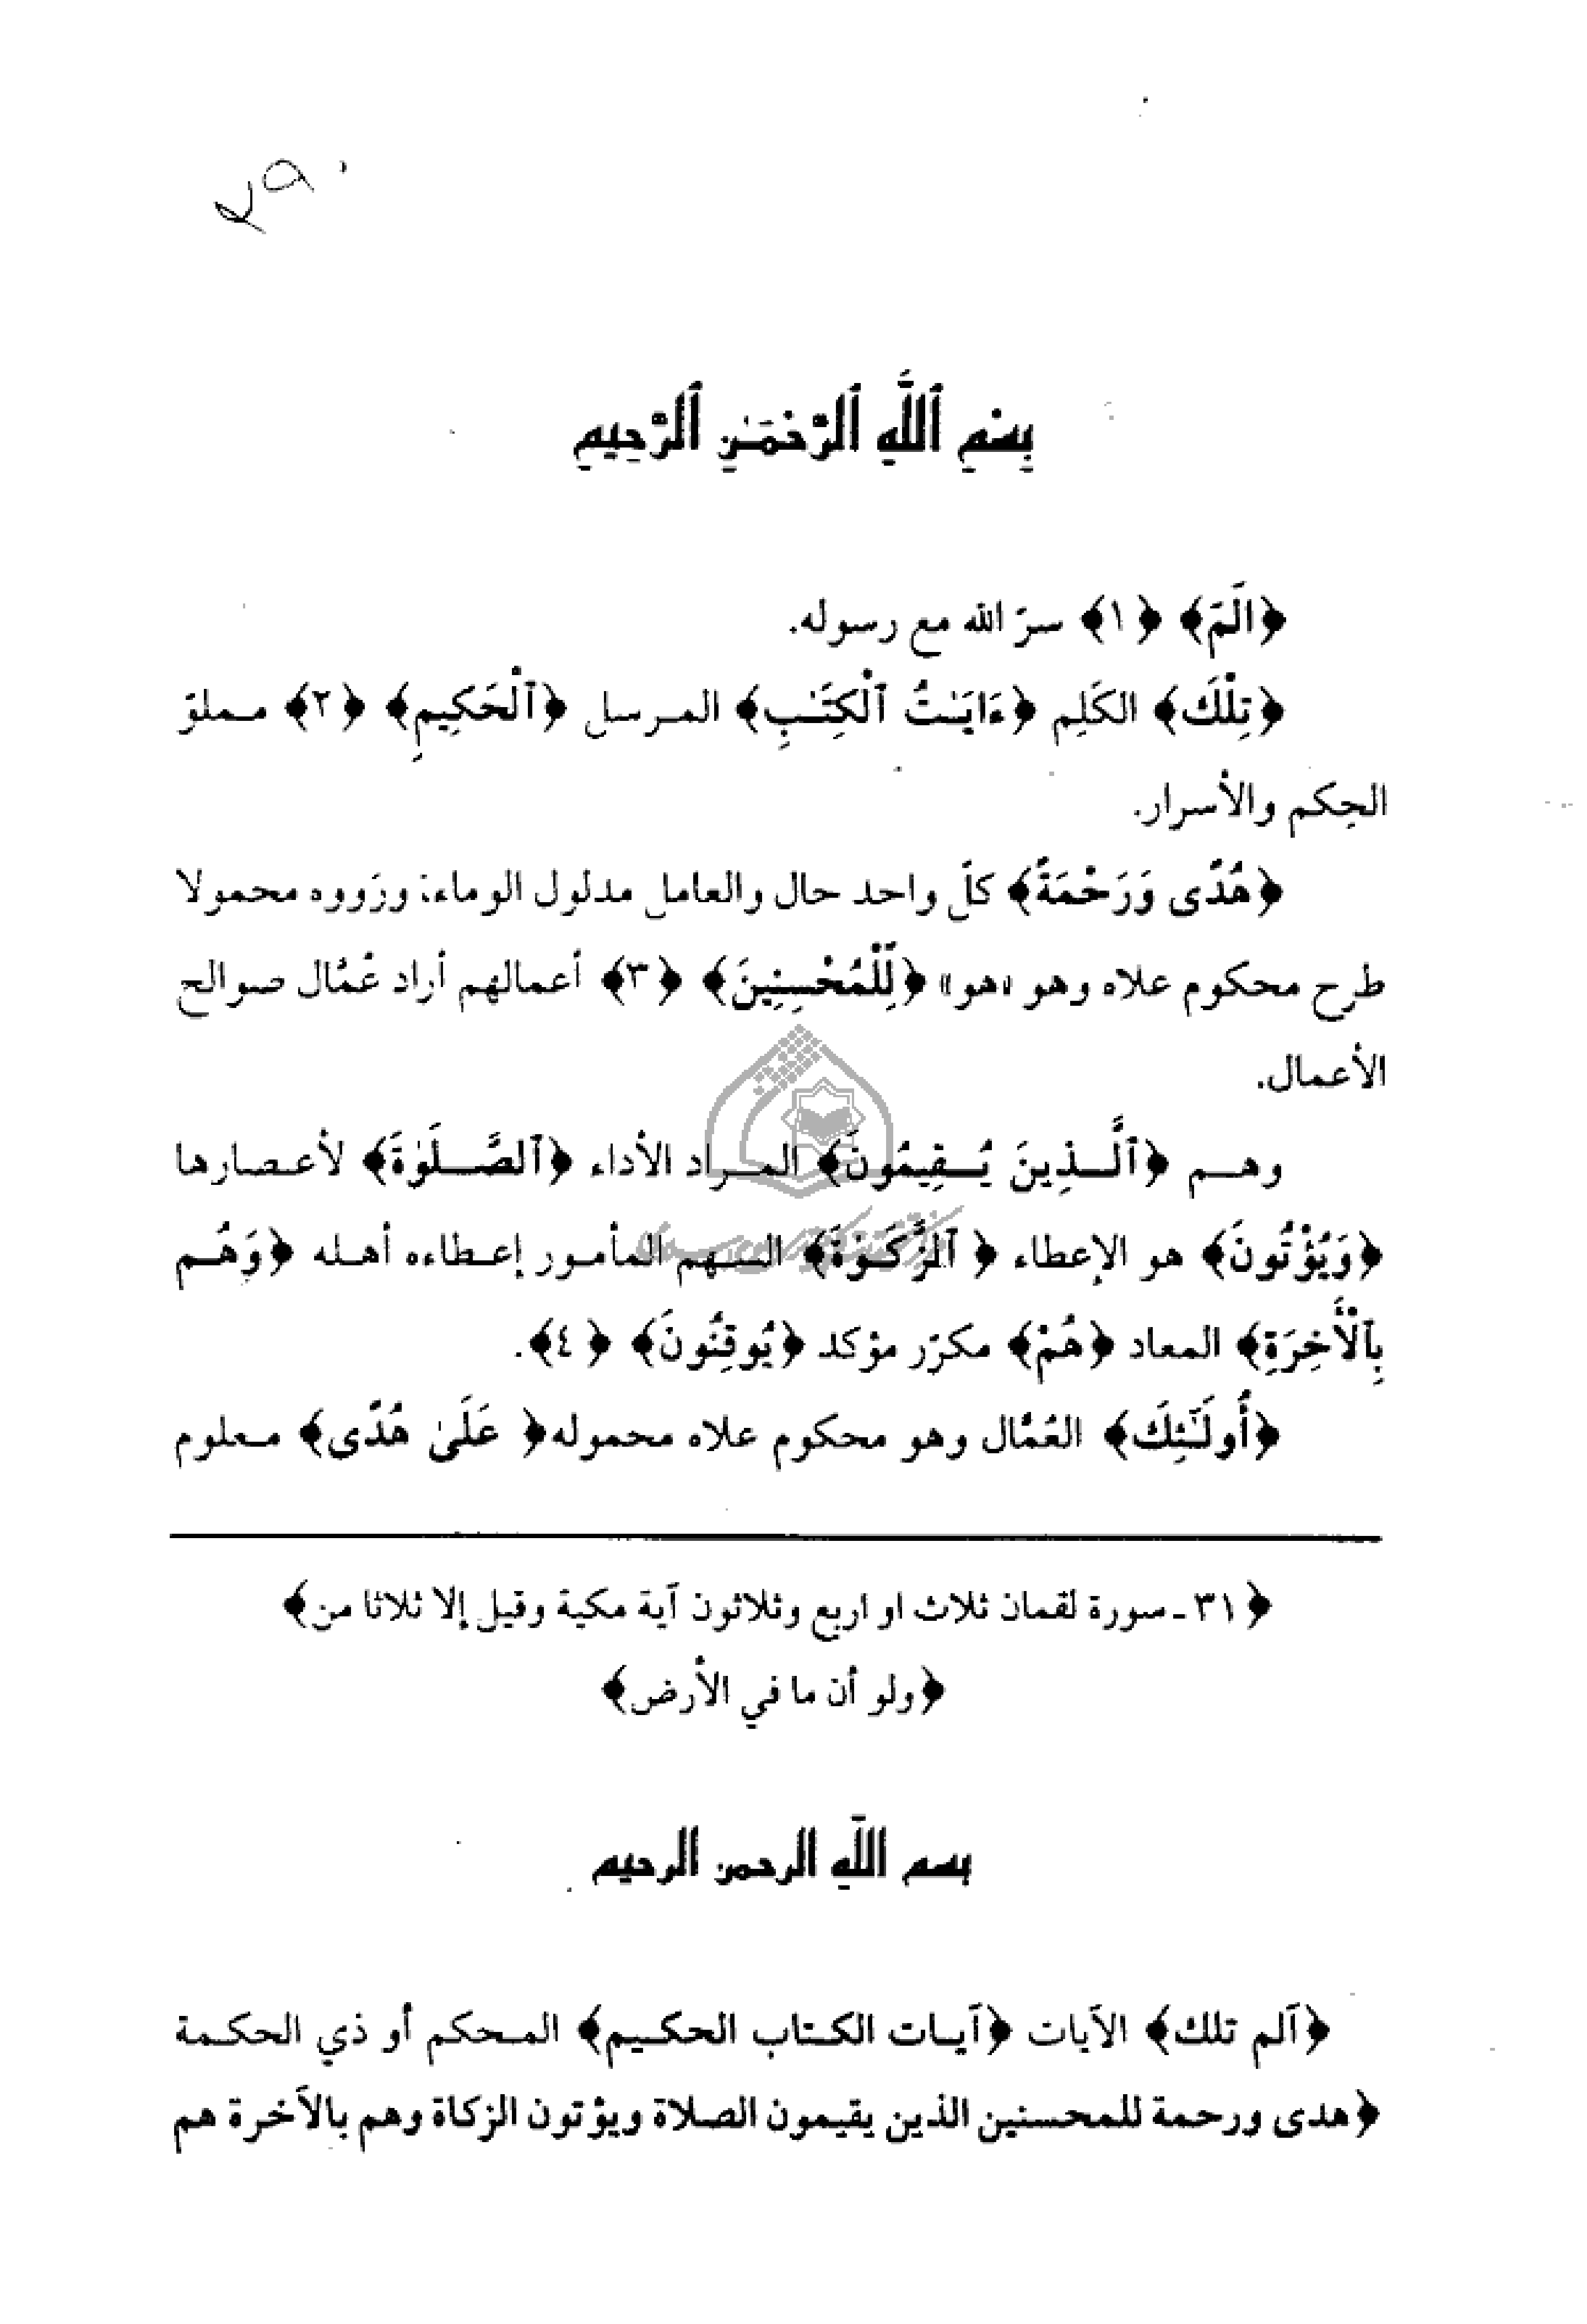 بِسْمِ ٱللَّهِ ٱلرَّحْمَـٰنِ ٱلرَّحِيمِ
﴿الٓمٓ﴾ ﴿١﴾ سرّ الله مع رسوله.
﴿تِلْكَ﴾ الكَلِم ﴿ءَايَـٰتُ ٱلْكِتَـٰبِ﴾ المرسل ﴿ٱلْحَكِيمِ﴾ ﴿٢﴾ مملوّ
الحِكم والأسرار.
﴿هُدًى وَرَحْمَةً﴾ كلّ واحد حال والعامل مدلول الوماء؛ ورَووه محمولا
طرح محكوم علاه وهو «هو» ﴿لِّلْمُحْسِنِينَ﴾ ﴿٣﴾ أعمالهم أراد عُمَّال صوالح
الأعمال.
وهم ﴿ٱلَّذِينَ يُقِيمُونَ﴾ المراد الأداء ﴿ٱلصَّلَوٰةَ﴾ لأعصارها
﴿وَيُؤْتُونَ﴾ هو الإعطاء ﴿ٱلزَّكَوٰةَ﴾ السهم المأمور إعطاءه أهله ﴿وَهُم
بِٱلْأَخِرَةِ﴾ المعاد ﴿هُمْ﴾ مكرّر مؤكد ﴿يُوقِنُونَ﴾ ﴿٤﴾.
﴿أُولَـٰٓئِكَ﴾ العُمَّال وهو محكوم علاه محموله ﴿عَلَىٰ هُدًى﴾ معلوم
﴿٣١ ـ سورة لقمان ثلاث او اربع وثلاثون آية مكية وقيل إلا ثلاثا من﴾
﴿ولو أن ما في الأرض﴾
بسم اللّه الرحمن الرحيم
﴿آلم تلك﴾ الآيات ﴿آيات الكتاب الحكيم﴾ المحكم أو ذي الحكمة
﴿هدى ورحمة للمحسنين الذين يقيمون الصلاة ويؤتون الزكاة وهم بالآخرة هم